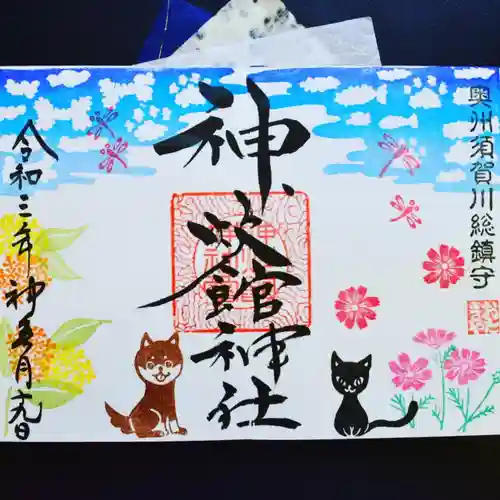 奥州須賀川総鎮守
神炊館神社
令和三年神無月十九日